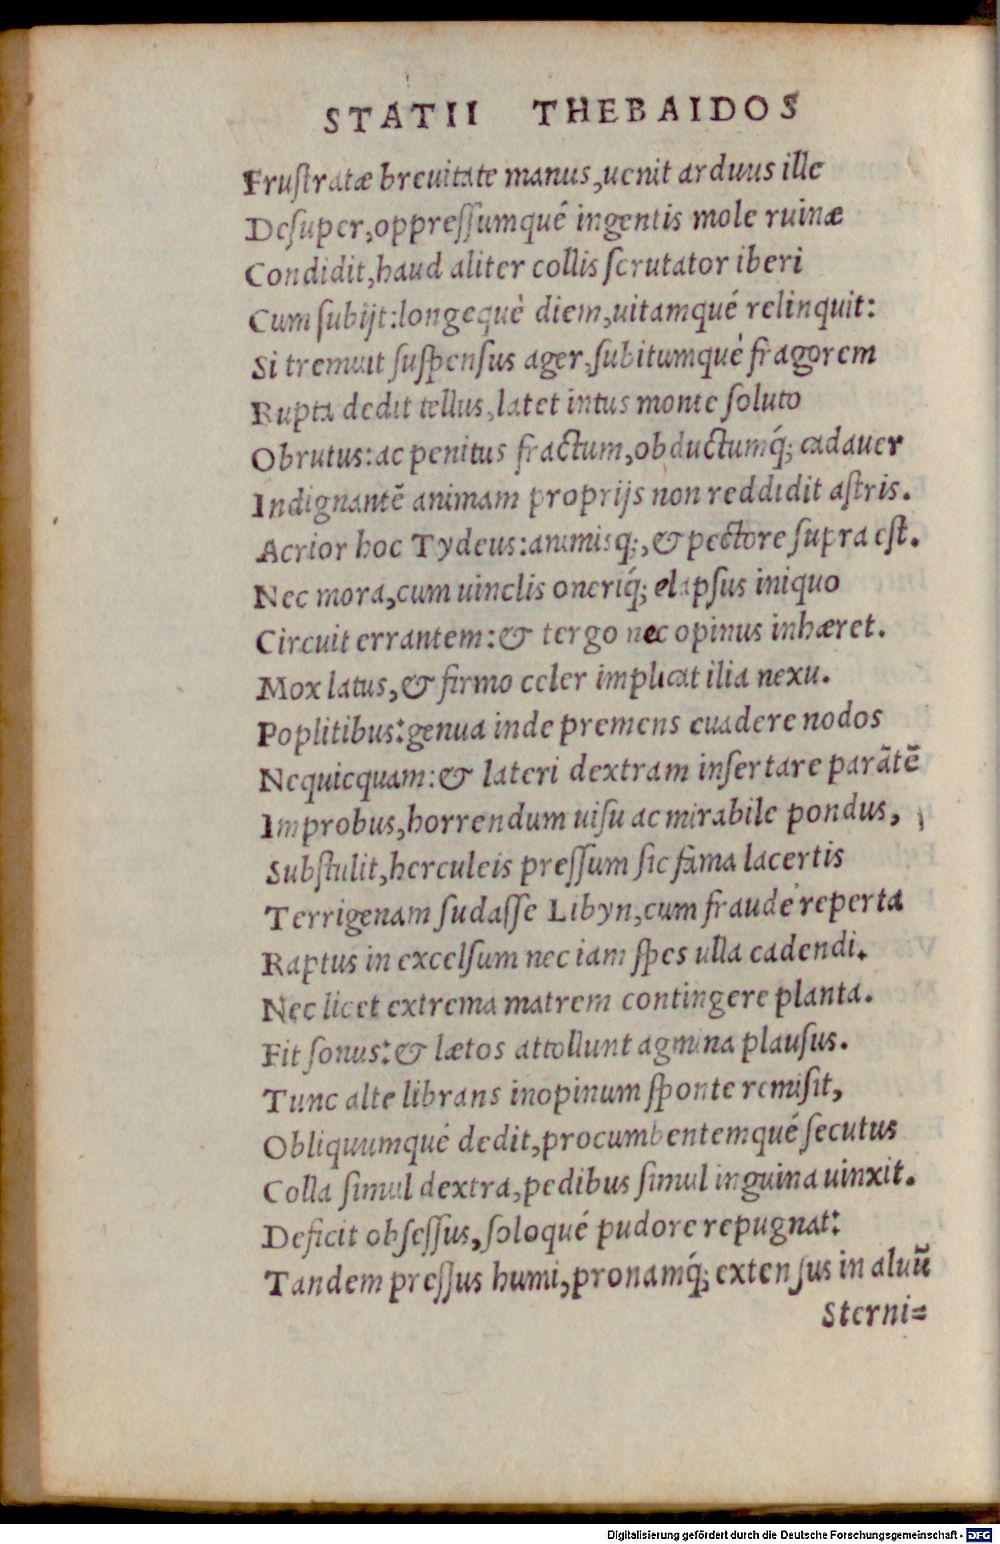 STATII THEBAIDOS
Frustratæ breuitate manus,uenit arduus ille
Desuper,oppressumqué ingentis mole ruinæ
Condidit,haud aliter collis scrutator iberi
Cum subijt:longequè diem,uitamqué relinquit:
Si tremuit suspensus ager,subitumquè fragorem
Rupta dedit tellus,latet intus monte soluto
Obrutus:ac penitus fractum,obductumq́; cadauer
Indignantē animam proprijs non reddidit astris.
Acrior hoc Tydeus:animisq;,& pectore supra est.
Nec mora,cum uinclis oneriq́; elapsus iniquo
Circuit errantem:& tergo nec opinus inhæret.
Mox latus,& firmo celer implicat ilia nexu.
Poplitibus:genua inde premens euadere nodos
Nequicquam:& lateri dextram insertare parātē
Improbus,horrendum uisu ac mirabile pondus,
Substulit,herculeis pressum sic fama lacertis
Terrigenam sudasse Libyn,cum fraude reperta
Raptus in excelsum nec iam spes ulla cadendi.
Nec licet extrema matrem contingere planta.
Fit sonus:& lætos attollunt agmina plausus.
Tunc alte librans inopinum sponte remisit,
Obliquumqué dedit,procumbentemqué secutus
Colla simul dextra,pedibus simul inguina uinxit.
Deficit obsessus,soloqué pudore repugnat:
Tandem pressus humi,pronamq́; extensus in aluū
Sterni=
Digitalisierung gefördert durch die Deutsche Forschungsgemeinschaft - DFG